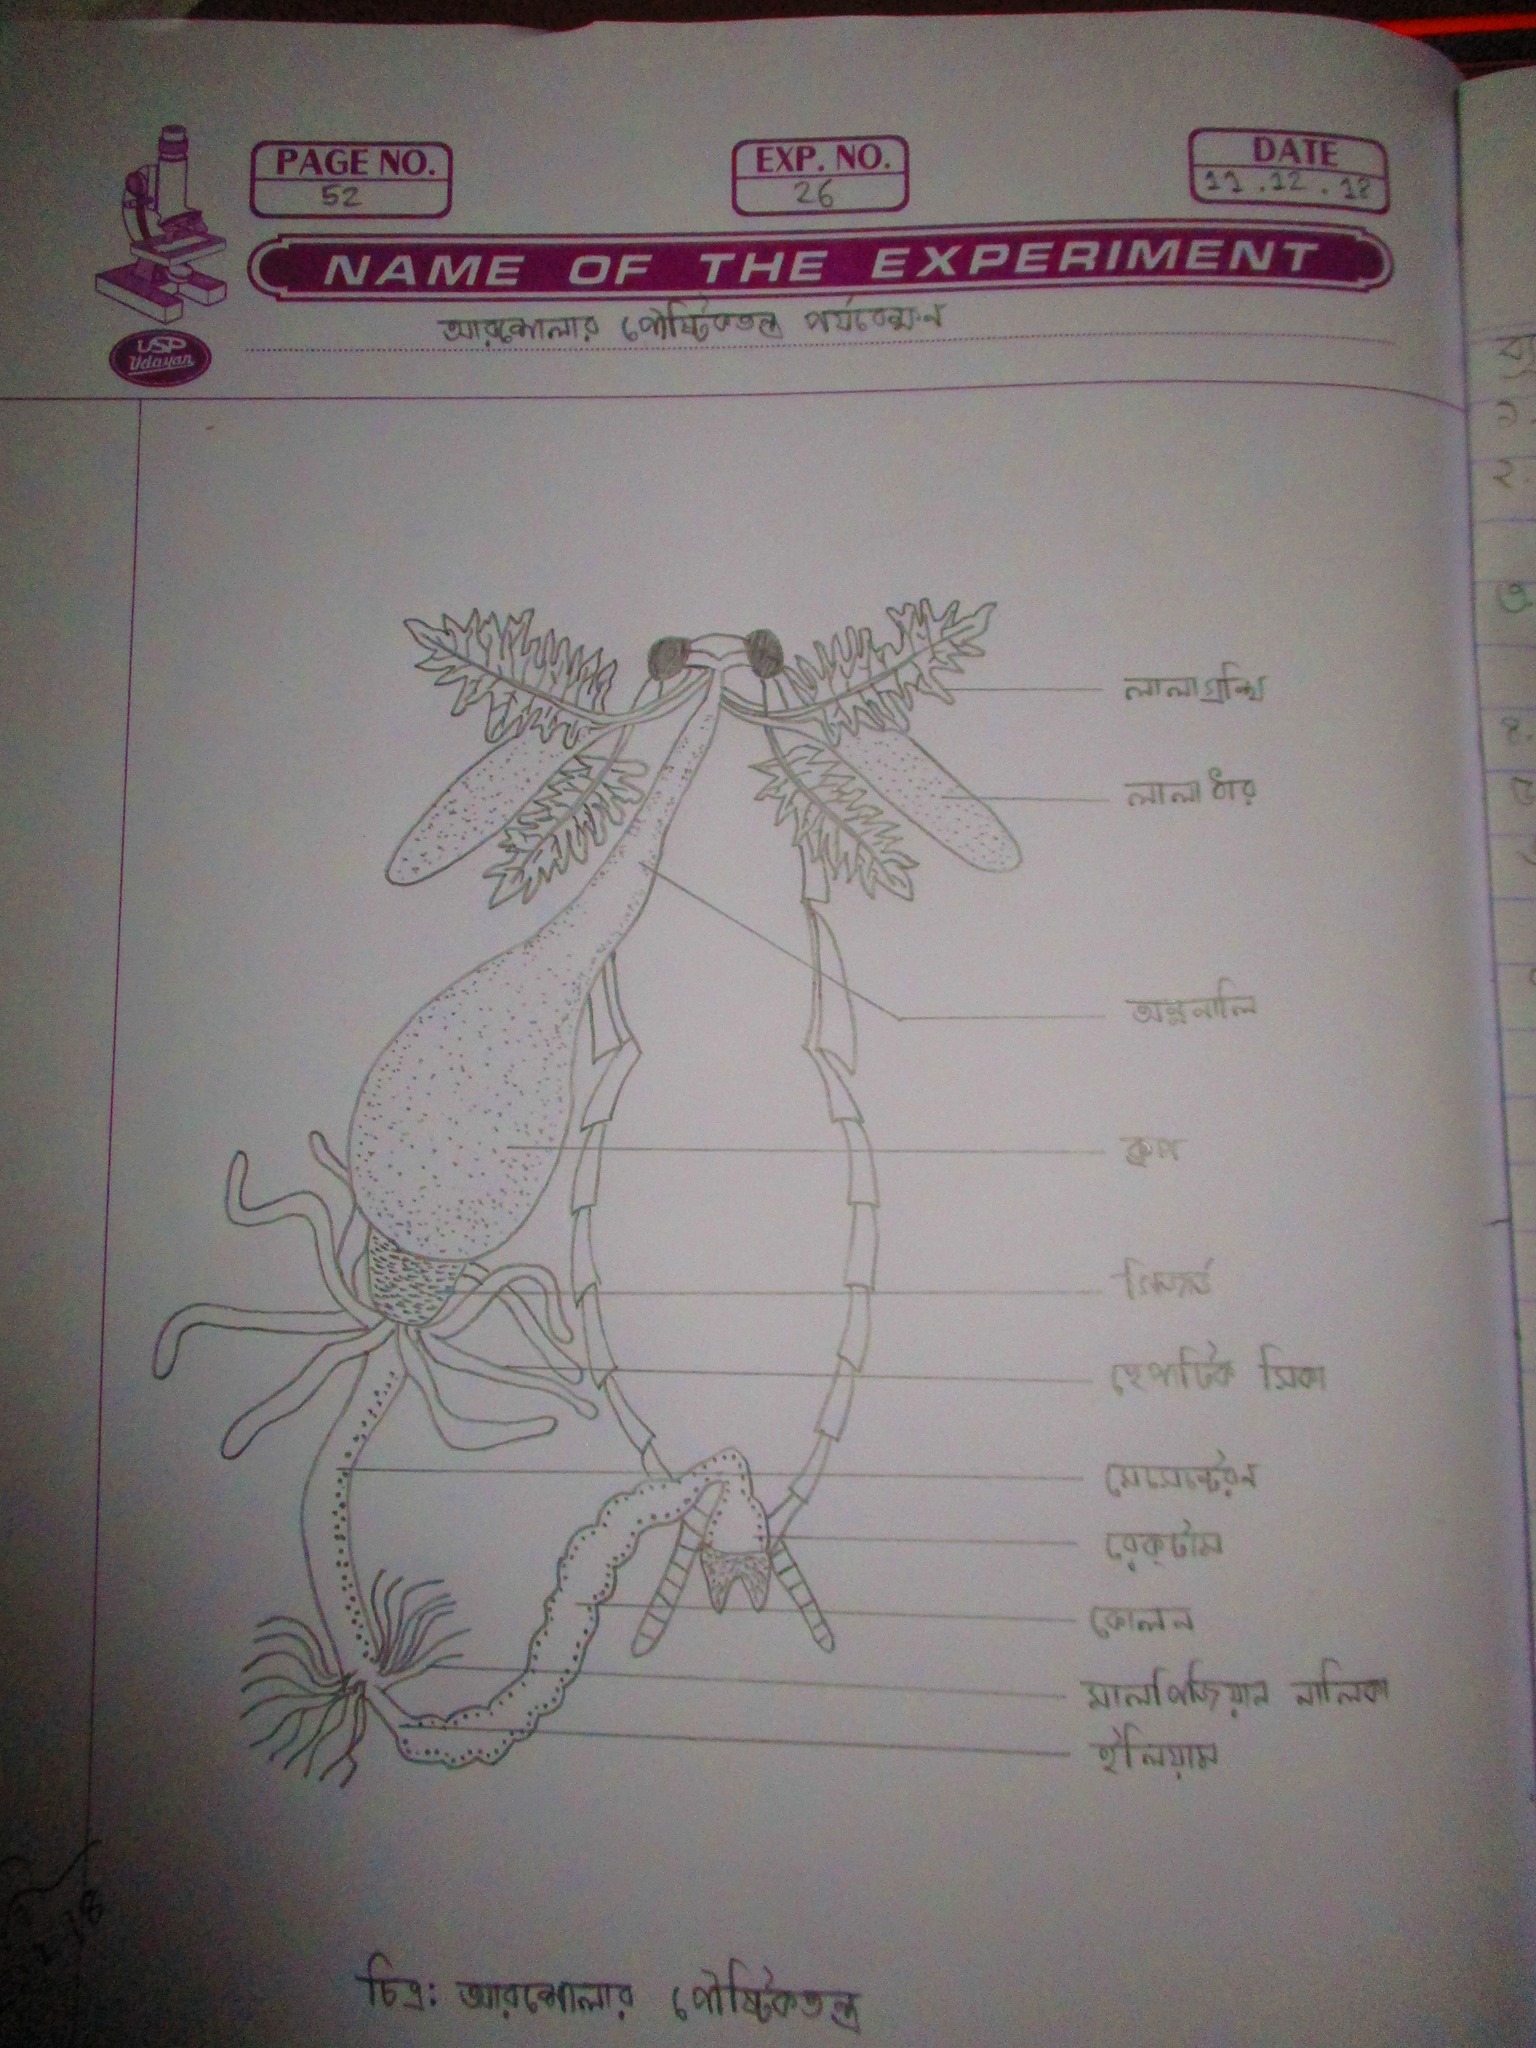 PAGE NO.
52
EXP. NO.
26
DATE
11.12.18
NAME OF THE EXPERIMENT
USP
Udayan
আরশোলার পৌষ্টিকতন্ত্র পর্যবেক্ষন
লালাগ্রন্থি
লালাধার
অন্ননালি
ক্রপ
গিজার্ড
হেপাটিক সিকা
মেসেন্টেরন
রেক্টাম
কোলন
মালপিজিয়ান নালিকা
ইলিয়াম
চিত্র: আরশোলার পৌষ্টিকতন্ত্র